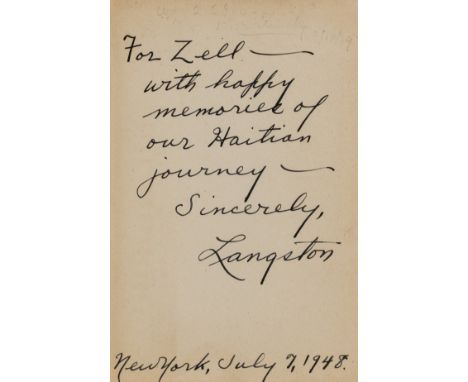 For Zell —
with happy
memories of
our Haitian
journey —
Sincerely,
Langston
New York, July 7, 1948.